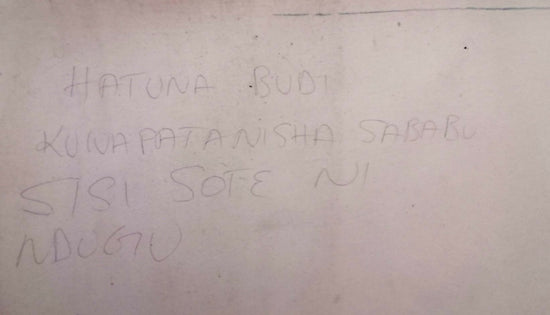 HATUNA BUDI
KUWAPATANISHA SABABU
SISI SOTE NI
NDUGU